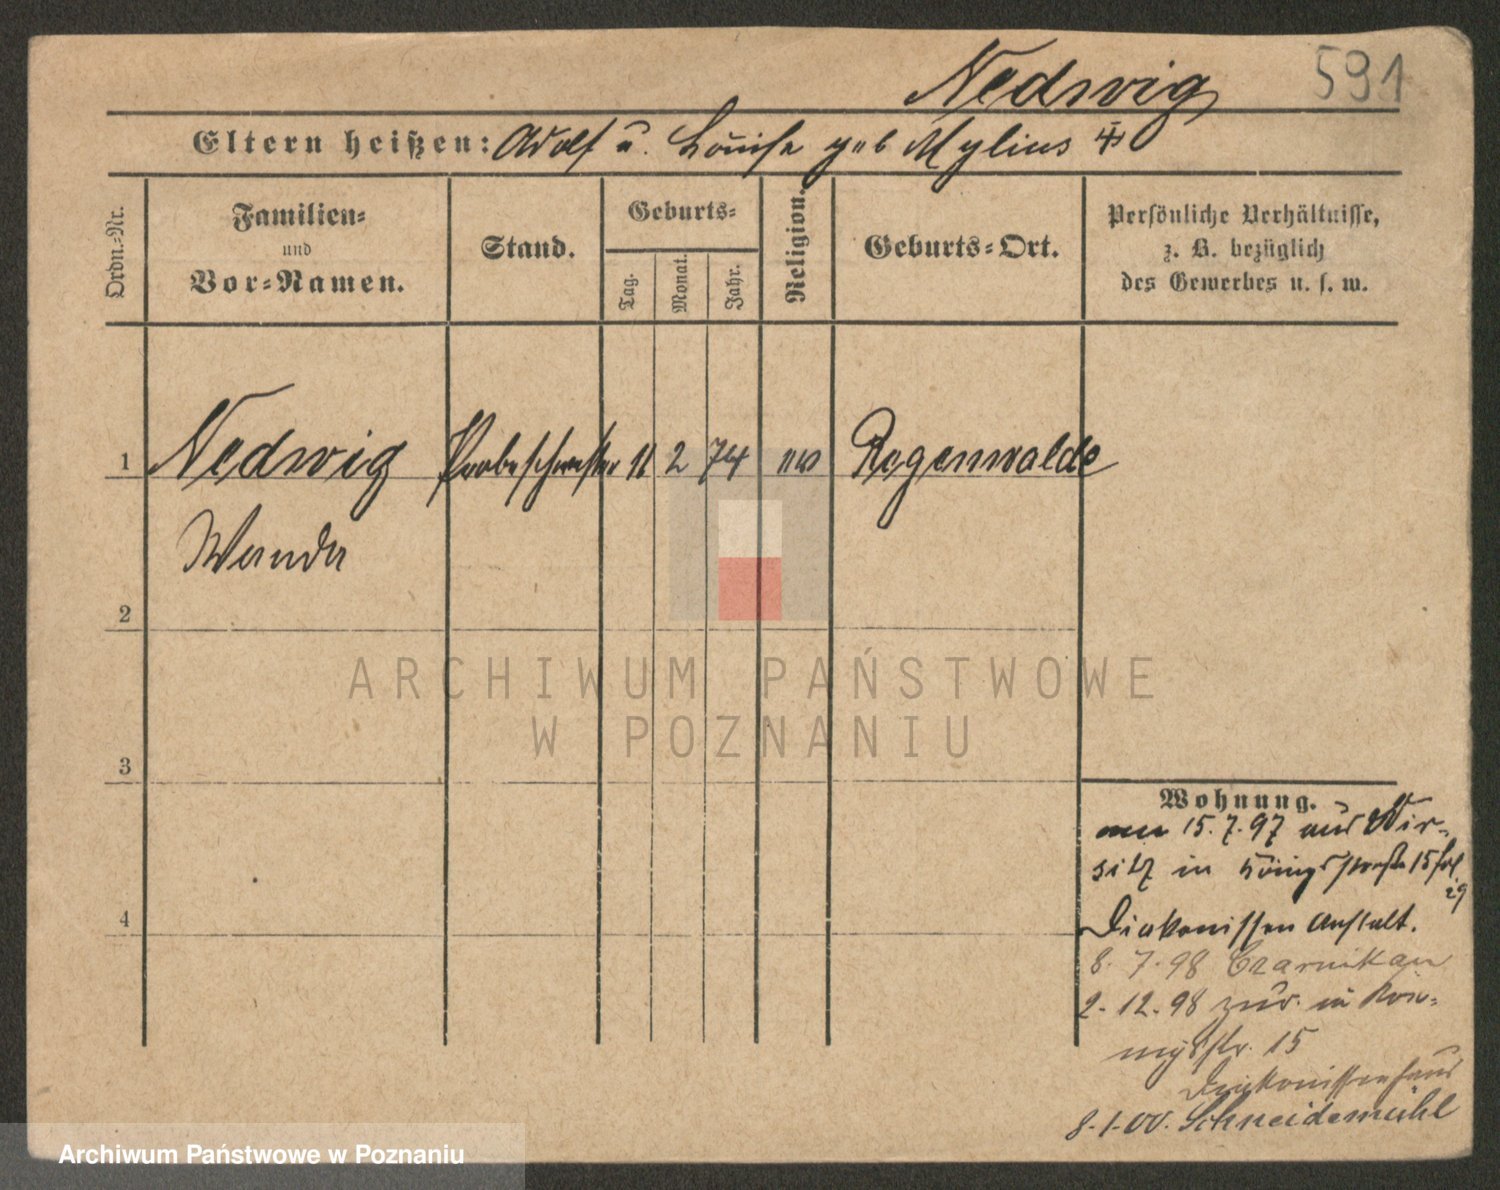 Nedwig 591
Eltern heißen: Adolf u. Louise geb Mylius
Ordn.-Nr.
Familien-
und
Vor-Namen.
Stand.
Geburts-
Tag.
Monat.
Jahr.
Religion.
Geburts-Ort.
Persönliche Verhältnisse,
z. B. bezüglich
des Gewerbes u. s. w.
1 Nedwig Probeschwester 11 2 74 ev Regenwalde
Wanda
2
3
4
Wohnung.
15.7.97 aus Wir-
sitz in Königstraße 15
29
Diakonissen Anstalt.
8.7.98 Czarnikau
2.12.98 zur. in Kön-
nigsstr. 15
Diakonissenhaus
8.1.00. Schneidemühl
ARCHIWUM PAŃSTWOWE
W POZNANIU
Archiwum Państwowe w Poznaniu